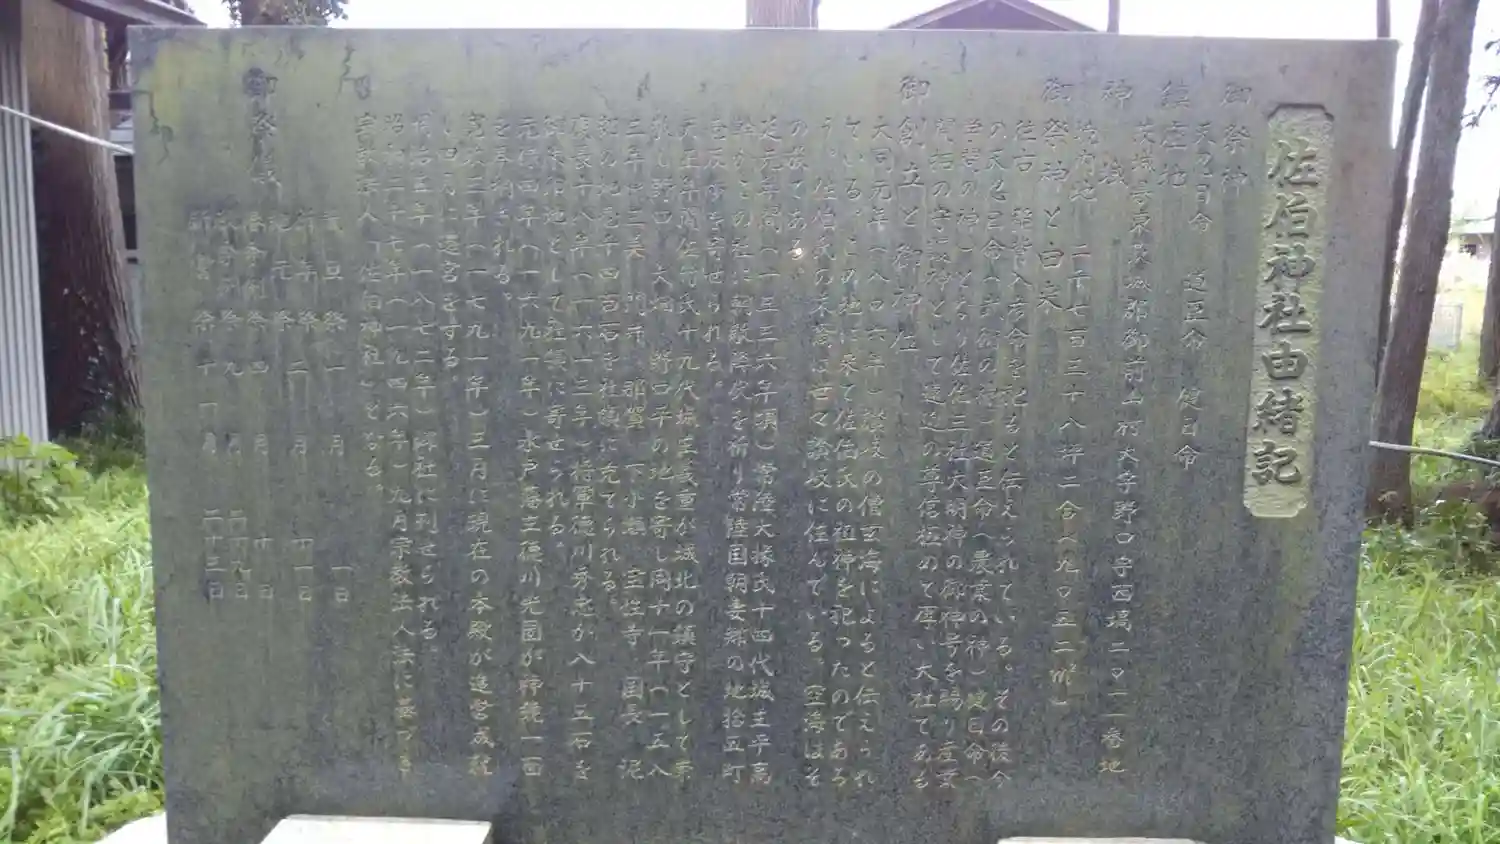 佐伯神社由緒記
御祭神
天忍日命 道臣命 健日命
鎮座地
茨城県東茨城郡御前山村大字野口字西塙二〇一一番地
神域
境内地 二千七百三十八坪二合(九〇五二㎡)
御祭神と由来
の天忍日命(武勇の神)道臣命(農業の神)健日命(
学問の神)となり佐伯三社大明神の御神号を賜り産業
開拓の守護神として遠近の尊信極めて厚い大社である
御創立と御神位
大同元年(八〇六年)讃岐の僧空海によると伝えられ
ている。この地に来て佐伯氏の祖神を祀ったのである
う。佐伯氏の末裔は世々讃岐に住んでいる。空海はそ
の裔である。
(一三三六年頃)常陸大掾氏十四代城主平高
幹がこの社に朝敵降伏を祈り常陸国朝妻郷の地拾五町
を寄せられる。
天正年間佐竹氏十九代城主義重が城北の鎮守として崇
敬し野口、大畑、野口平の地を寄し同十一年(一五八
三年)
の地を千四百石を社領に充てられる。
慶長十八年(一六一三年)将軍徳川秀忠が八十五石を
として社領に寄せられる。
元禄四年(一六九一年)水戸藩主徳川光圀が神鏡一面
を寄納される。
寛政三年(一七九一年)三月に現在の本殿が造営成就
し四月に遷宮をする。
明治五年(一八七二年)郷社に列せられる
昭和二十七年(一九四六年)九月宗教法人法に基づき
宗教法人「佐伯神社」となる。
御祭儀
元旦祭 一月 一日
祈年祭 二月 十一日
紀元祭
春季例祭 四月 廿日
秋季例祭 九月 二十九日
新嘗祭 十一月 二十三日